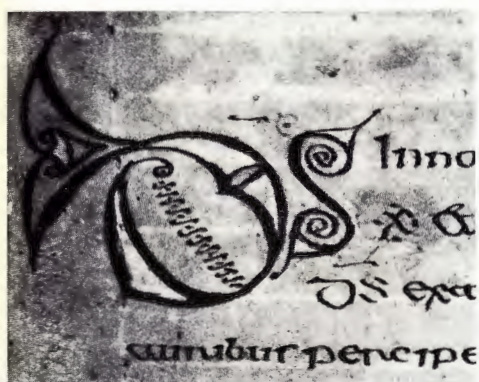 DS Inno
DS exa
auribus percipe